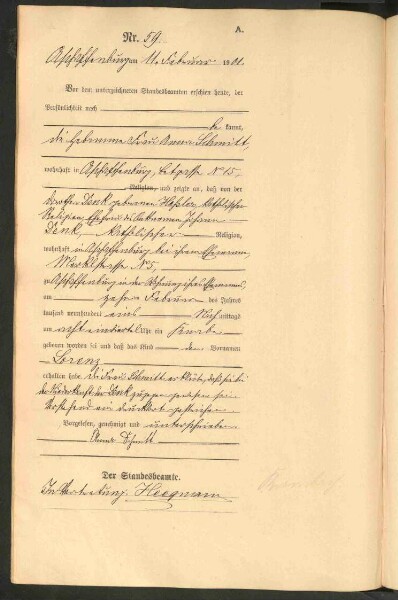 A.
Nr. 59.
Aschaffenburg am 11. Februar 1901.
Vor dem unterzeichneten Standesbeamten erschien heute, der
Persönlichkeit nach
be kannt,
die Hebamme Frau Anna Schmitt,
wohnhaft in Aschaffenburg, N° 15
Religion, und zeigte an, daß von der
Dorothea Denk geborenen katholischer
Religion, Ehefrau des Johann
Denk katholischer Religion,
wohnhaft in Aschaffenburg bei ihrem Ehemanne,
N° 5,
zu Aschaffenburg in der Wohnung ihres Ehemannes
am zehnten Februar des Jahres
tausend neunhundert eins Nachmittags
um acht einviertel Uhr ein Knabe
geboren worden sei und daß das Kind den Vornamen
Lorenz
erhalten habe. die Frau Schmitt erklärte, daß sie bei
der Niederkunft der Denk zugegen gewesen sei.
Vorstehend ein Druckwort gestrichen.
Vorgelesen, genehmigt und unterschrieben
Anna Schmitt
Der Standesbeamte.
In Vertretung: Heegmann